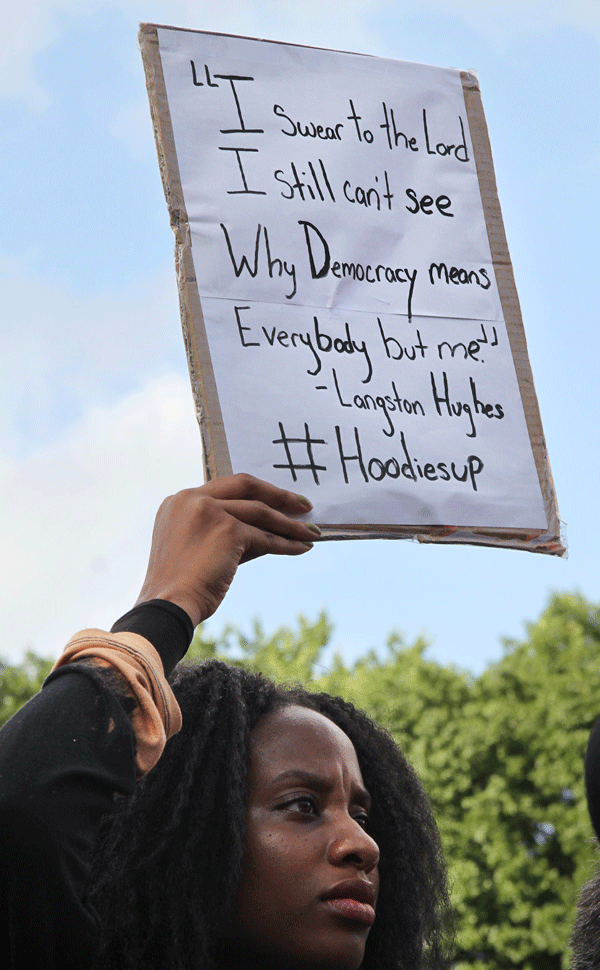 "I swear to the Lord
I still can't see
Why Democracy means
Everybody but me."
-Langston Hughes
#Hoodiesup